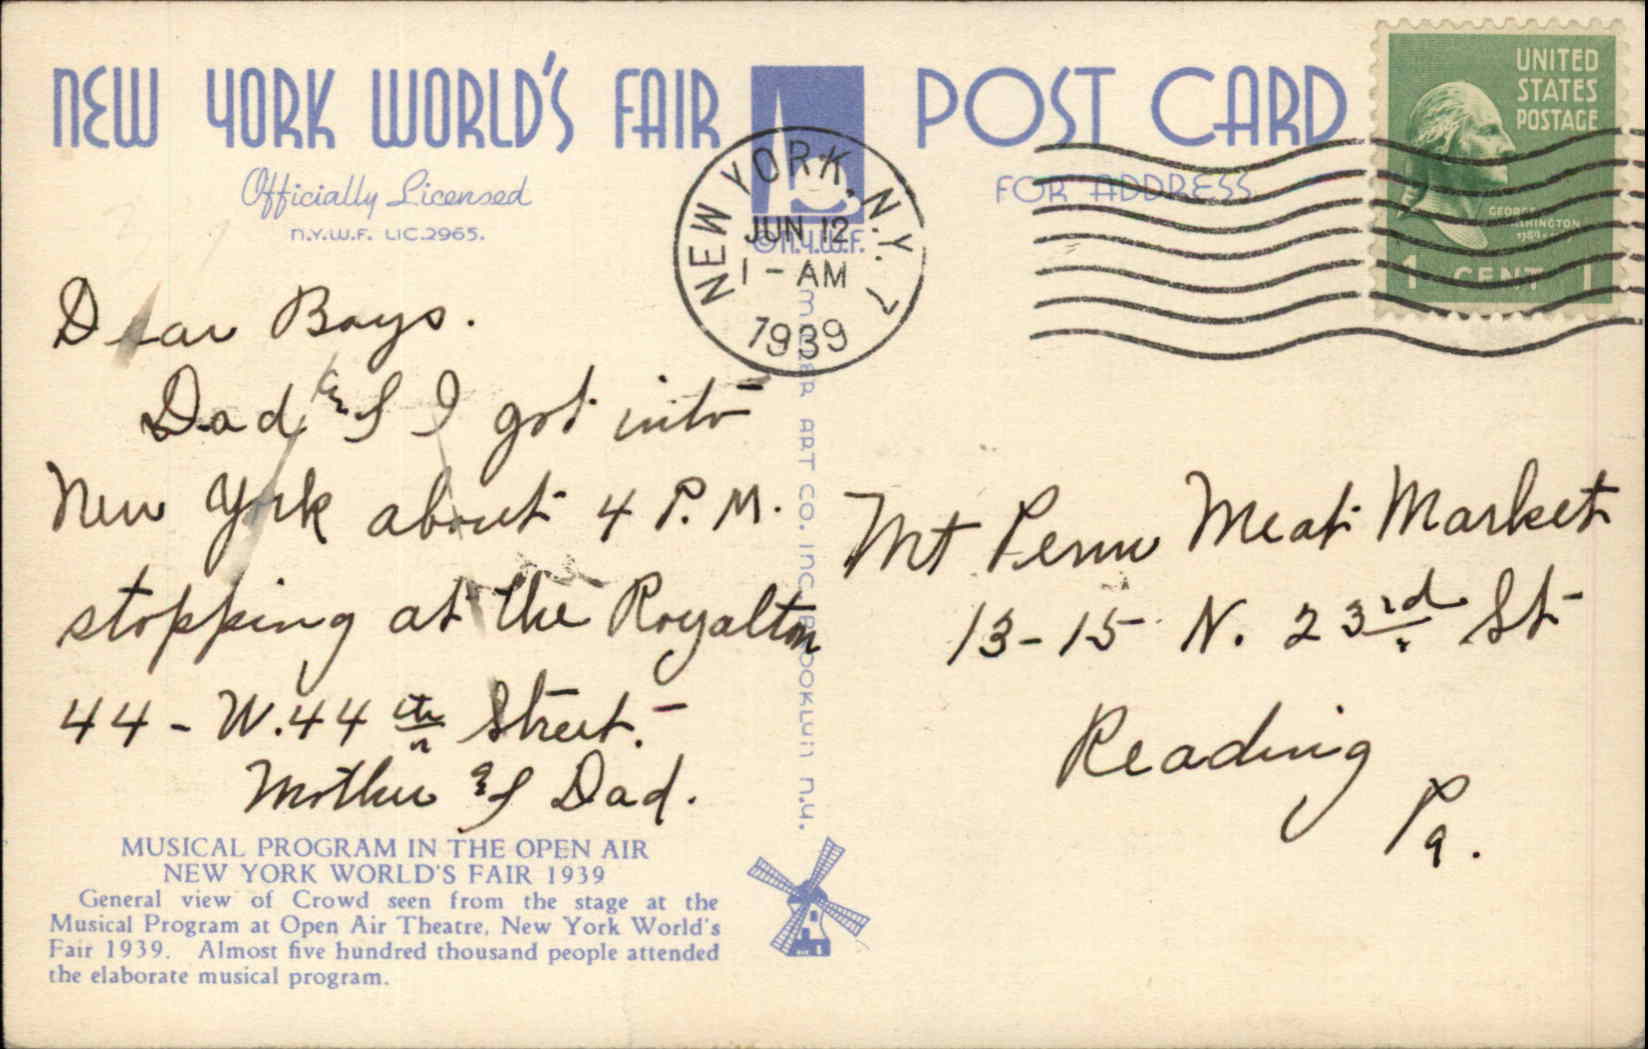 NEW YORK WORLD'S FAIR POST CARD
Officially Licensed
N.Y.W.F. LIC.2965.
FOR ADDRESS
© N.Y.W.F.
NEW YORK, N.Y. 7
JUN 12
1 - AM
1939
UNITED
STATES
POSTAGE
GEORGE
WASHINGTON
1 CENT 1
Dear Boys.
Dad & I got into
New York about 4 P.M.
stopping at the Royalton
44 - W. 44th Street.
Mother & Dad.
ART CO. INC. BROOKLYN N.Y.
Mt Penn Meat Market
13-15 N. 23rd St
Reading
Pa.
MUSICAL PROGRAM IN THE OPEN AIR
NEW YORK WORLD'S FAIR 1939
General view of Crowd seen from the stage at the
Musical Program at Open Air Theatre, New York World's
Fair 1939. Almost five hundred thousand people attended
the elaborate musical program.